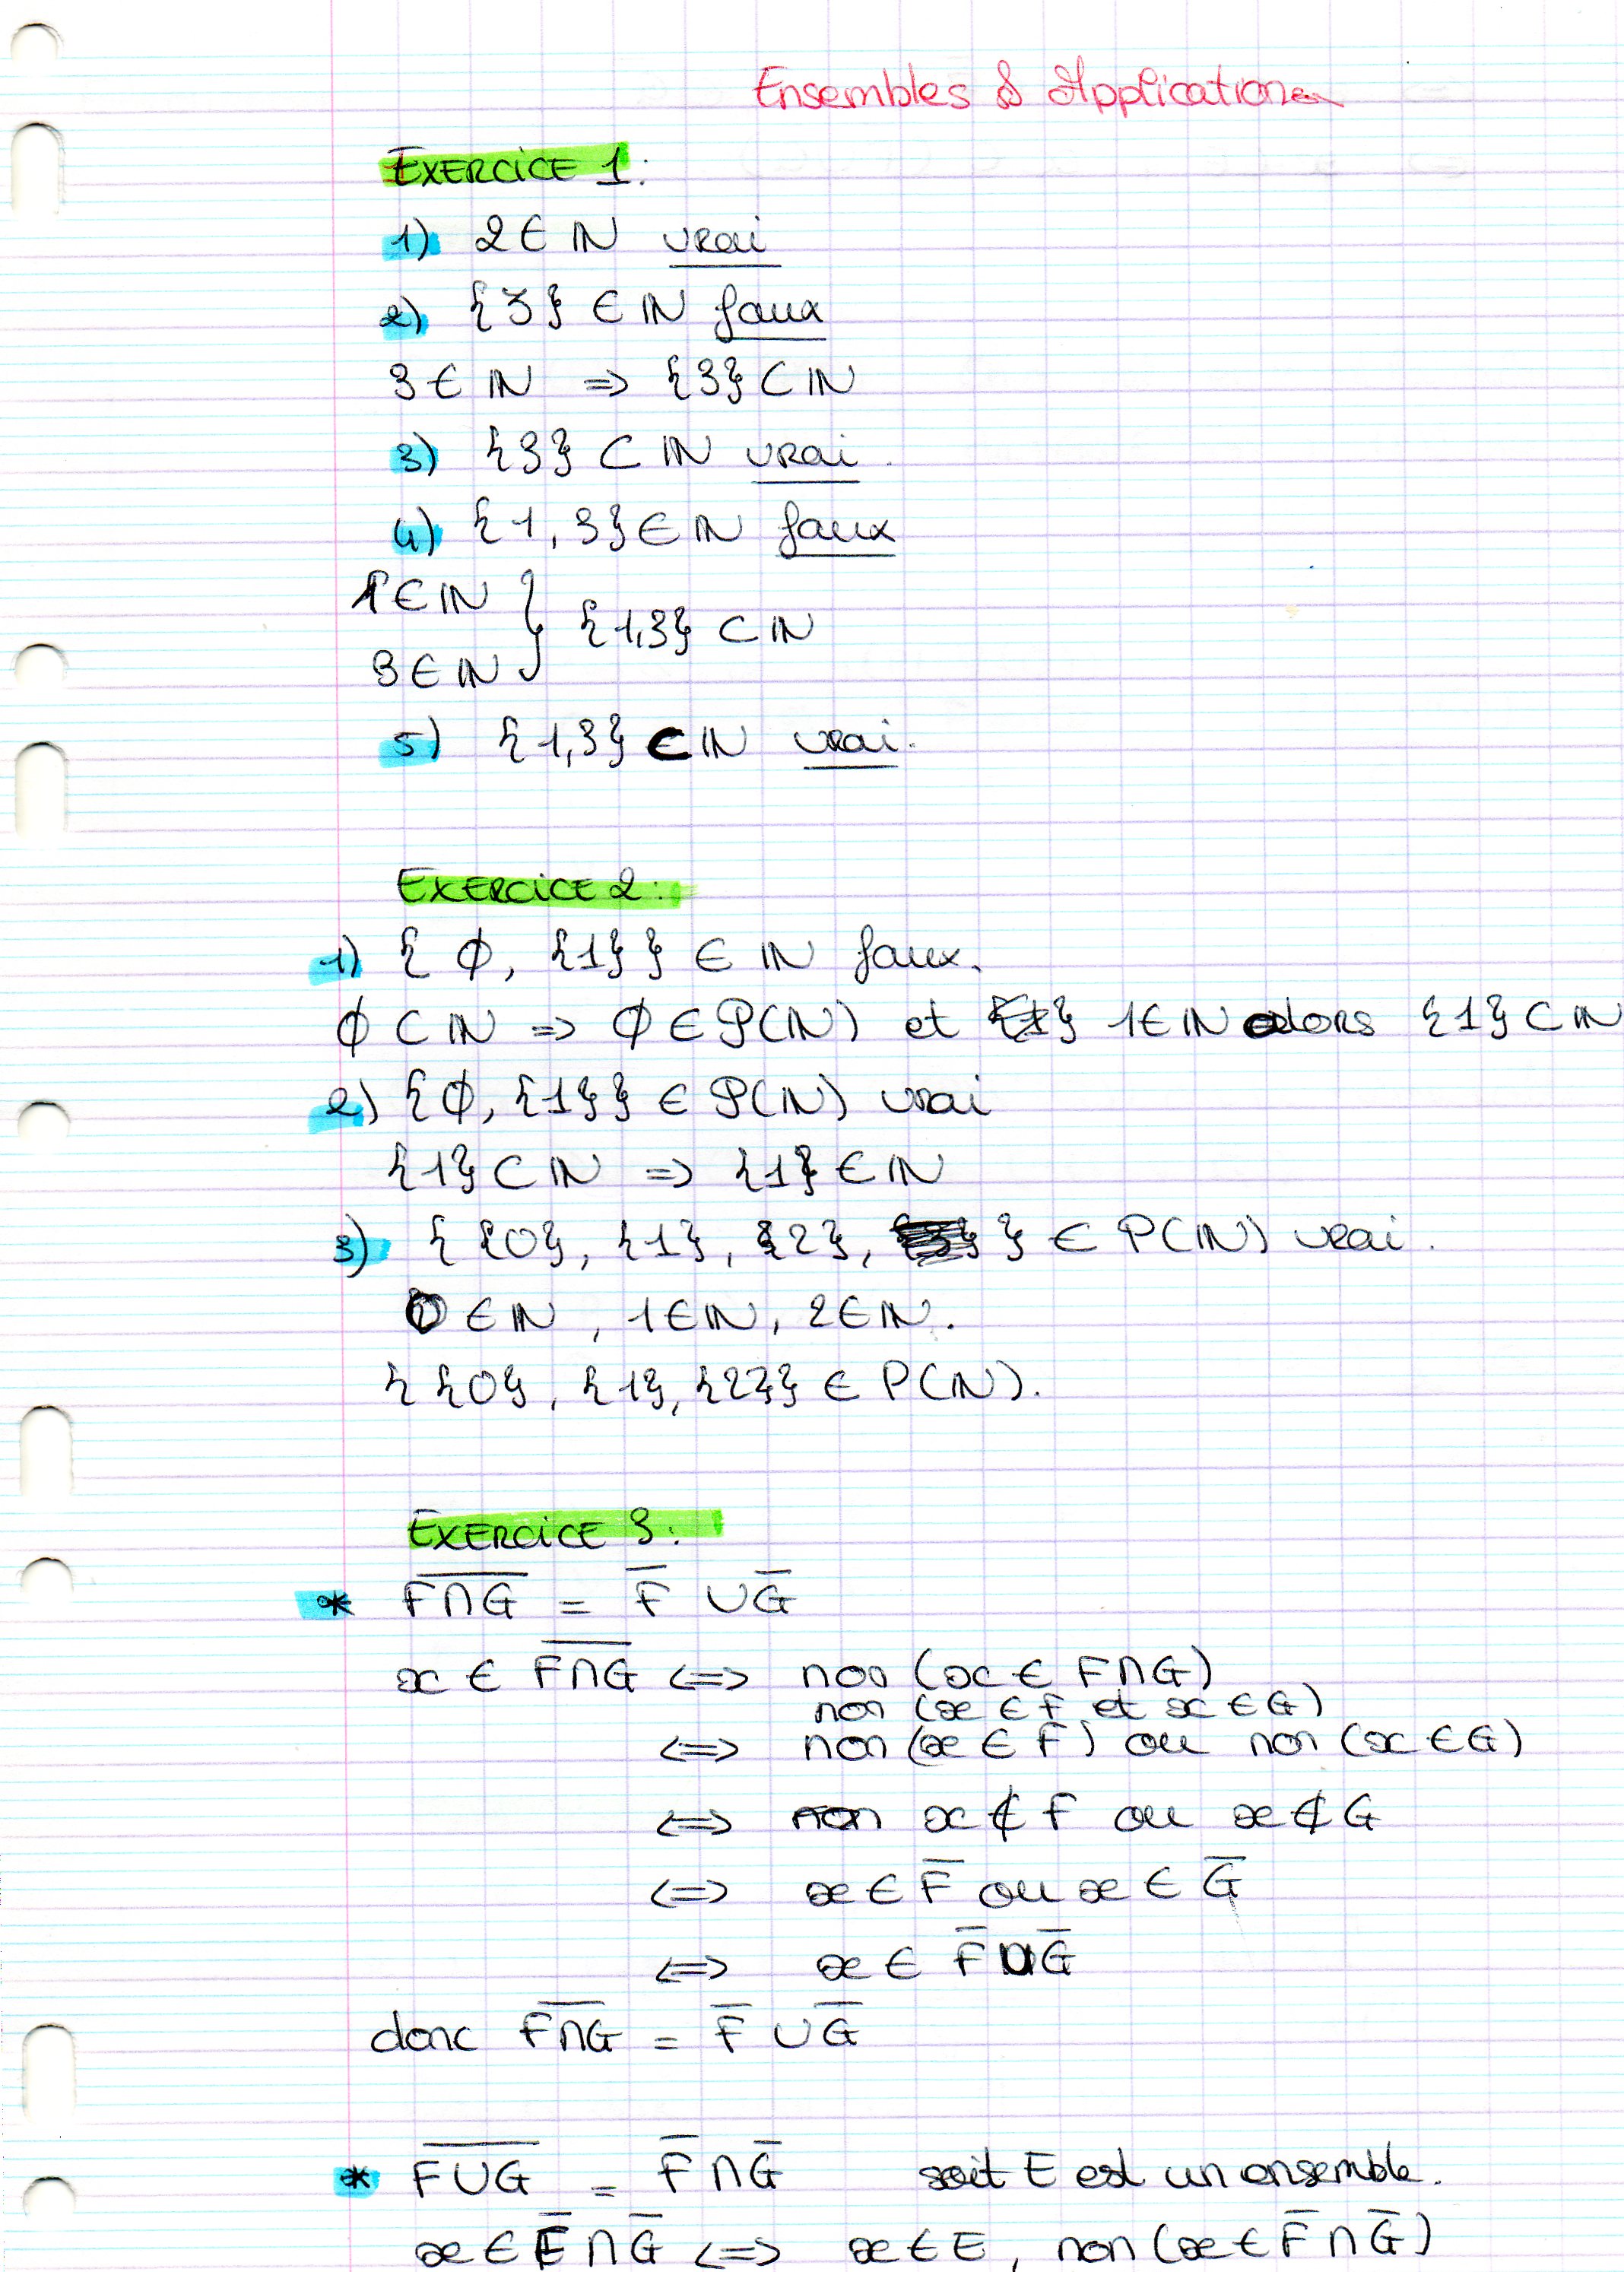 Ensembles & Applications
EXERCICE 1:
1) 2 ∈ ℕ vrai
2) {3} ∈ ℕ faux
3 ∈ ℕ => {3} ⊂ ℕ
3) {3} ⊂ ℕ vrai.
4) {1, 3} ∈ ℕ faux
1 ∈ ℕ
3 ∈ ℕ } {1,3} ⊂ ℕ
5) {1,3} ⊂ ℕ vrai.
EXERCICE 2:
1) { ∅, {1} } ∈ ℕ faux.
∅ ⊂ ℕ => ∅ ∈ P(ℕ) et 1 ∈ ℕ alors {1} ⊂ ℕ
2) {∅, {1}} ∈ P(ℕ) vrai
{1} ⊂ ℕ => {1} ∈ ℕ
3) { {0}, {1}, {2}, } ∈ P(ℕ) vrai.
0 ∈ ℕ, 1 ∈ ℕ, 2 ∈ ℕ.
{ {0}, {1}, {2}} ∈ P(ℕ).
EXERCICE 3:
* F̅∩̅G̅ = F̅ ∪ G̅
x ∈ F̅∩̅G̅ <=> non (x ∈ F∩G)
non (x ∈ F et x ∈ G)
<=> non (x ∈ F) ou non (x ∈ G)
<=> x ∉ F ou x ∉ G
<=> x ∈ F̅ ou x ∈ G̅
<=> x ∈ F̅ ∪ G̅
donc F̅∩̅G̅ = F̅ ∪ G̅
* F̅∪̅G̅ = F̅ ∩ G̅ soit E est un ensemble.
x ∈ F̅ ∩ G̅ <=> x ∈ E, non (x ∈ F̅ ∩ G̅)